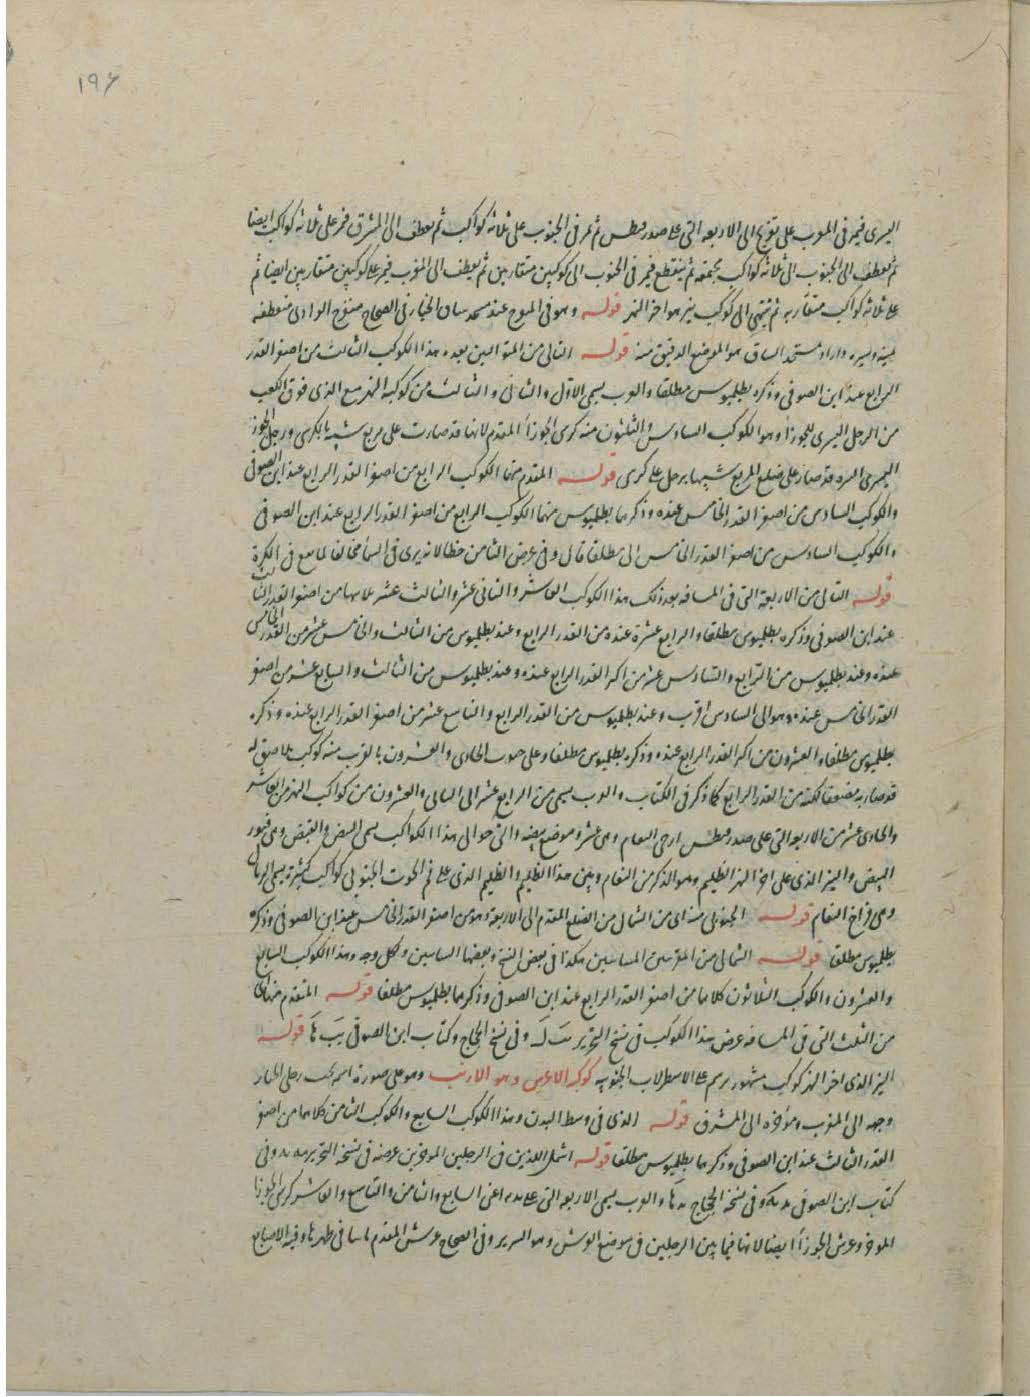 ١٩٦
اليسرى فيمر فى المغرب على تعوج الى الاربعة التى على صدر قيطس ثم تمر فى الجنوب على ثلاثة كواكب ثم يعطف الى المشرق فمر على ثلاثة كواكب ايضا
ثم يعطف الى الجنوب الى ثلاثة كواكب مجتمعة ثم ينقطع فيمر فى الجنوب الى كوكبين متقاربين ثم يعطف الى المغرب فيمر على كوكبين متقاربين ايضا ثم
على ثلاثة كواكب متقاربة ثم ينتهى الى كوكب نير هو اخر النهر قوله وهو فى المعوج عند فى الصحاح منعرج الوادى منعطفه
يمنة ويسرة واراد الساق هو الموضع الدقيق منه قوله التالى من بعده هذا الكوكب الثالث من اصغر القدر
الرابع عند ابن الصوفى وذكره بطلميوس مطلقا والعرب يسمى الاول والثانى والثالث من كوكبة النهر مع الذى فوق الكعب
من الرجل اليسرى للجوزأ وهو الكوكب السادس والثلثون منه كرسى الجوزأ المقدم لانها قد صارت على مربع شبيه بالكرسى ورجل الجوزأ
اليسرى قد صار على ضلع المربع شبيها برجل على كرسى قوله المقدم منهما الكوكب الرابع من اصغر القدر الرابع عند ابن الصوفى
والكوكب السادس من اصغر القدر الخامس عنده وذكرهما بطلميوس منهما الكوكب الرابع من اصغر القدر الرابع عند ابن الصوفى
والكوكب السادس من اصغر القدر الخامس مطلقا قال وفى عرض الثامن خطا لانه يرى فى السمأ مخالفا لما يقع فى الكرة
قوله التالى من الاربعة التى فى المسافة بعد ذلك هذا الكوكب العاشر والثانى عشر والثالث عشر من اصغر القدر الثالث
عند ابن الصوفى وذكره بطلميوس مطلقا والرابع عشرة عنده من القدر الرابع وعند بطلميوس من الثالث والخامس عشر من القدر الخامس
عنده وعند بطلميوس من الرابع والسادس عشر من اكبر القدر الرابع عنده وعند بطلميوس من الثالث والسابع عشر من اصغر
القدر الخامس عنده وهو الى السادس اقرب وعند بطلميوس من القدر الرابع والتاسع عشر من اصغر القدر الرابع عنده وذكره
بطلميوس مطلقا والعشرون من اكبر القدر الرابع عنده وذكره بطلميوس مطلقا وعلى جنوب الحادى والعشرون بالقرب منه كوكب ملاصق له
قد صار به مضعفا لكنه من القدر الرابع كما ذكر فى الكتاب والعرب يسمى من الرابع عشر الى الثانى والعشرون من كواكب النهر مع العاشر
والحادى عشر من الاربعة التى على صدر قيطس ادحى النعام وهى عشه وموضع بيضه والتى حوالى هذا الكواكب يسمى البيض والقيض وهى قشور
البيض والنير الذى على اخر النهر الظليم وهو الذكر من النعام وبين هذا الظليم والظليم الذى على فم الحوت الجنوبى كواكب كثيرة يسمى الرئال
وهى فراخ النعام قوله الجنوبى منه اى من الشمالى من الضلع المقدم الى الاربعة وهو من اصغر القدر الخامس عند ابن الصوفى وذكره
بطلميوس مطلقا قوله الشمالى من هكذا فى بعض النسخ وبعضها ولكل وجه وهذا الكوكب السابع
والعشرون والكوكب الثلاثون كلاهما من اصغر القدر الرابع عند ابن الصوفى وذكرهما بطلميوس مطلقا قوله المتقدم منها اى
من الثلث التى فى المسافة عرض هذا الكوكب فى نسخ التحرير وفى نسخ الحجاج وكتاب ابن الصوفى قوله
النير الذى اخر النهر كوكب مشهور يرسم على الاسطرلاب الجنوبية كوكبة الارنب وهو على صورة ارنب تحت رجلى الجبار
وجهه الى المغرب ومؤخره الى المشرق قوله الذى فى وسط البدن وهذا الكوكب السابع والكوكب الثامن كلاهما من اصغر
القدر الثالث عند ابن الصوفى وذكرهما بطلميوس مطلقا قوله اشمل اللذين فى الرجلين المؤخرين عرضه فى نسخة التحرير وفى
كتاب ابن الصوفى وفى نسخة الحجاج والعرب يسمى الاربعة التى على اعنى السابع والثامن والتاسع والعاشر كرسى الجوزأ
المؤخر وعرش الجوزأ ايضا لانها فيما بين الرجلين فى موضع العرش وهو السرير وفى الصحاح عرش المقدم فى ظهرها وفيه الاصابع